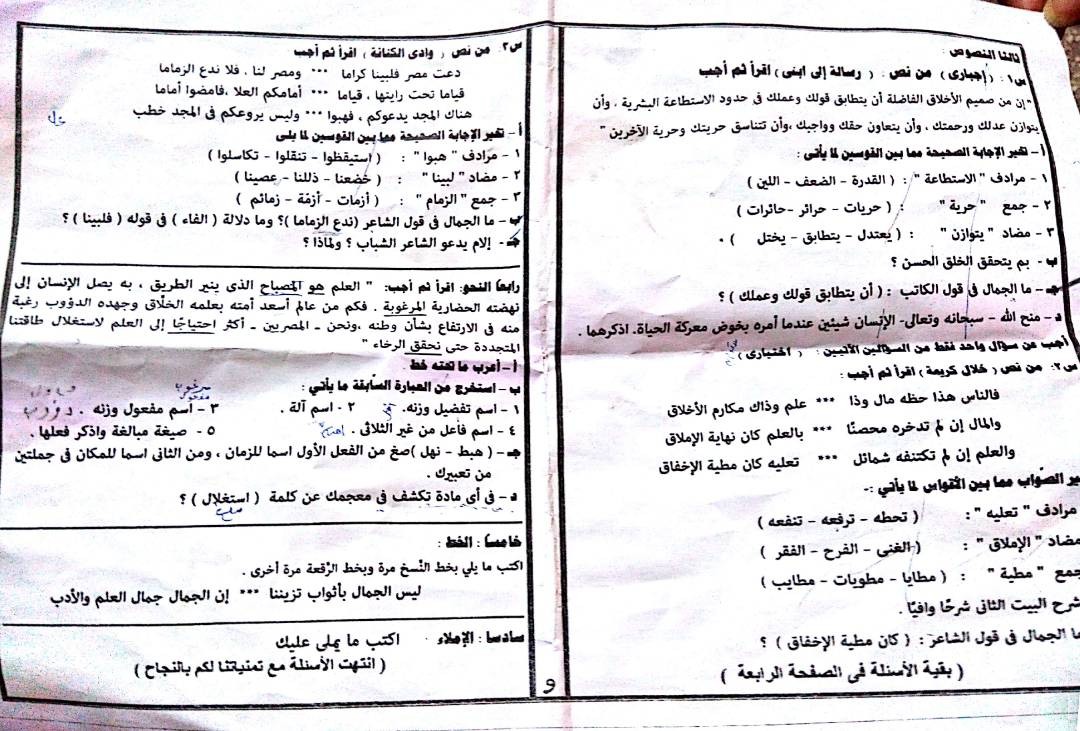 ثالثا النصوص :
س١ : ( إجبارى ) من نص : ( رسالة إلى ابنى ) اقرأ ثم أجب
"إن من صميم الأخلاق الفاضلة أن يتطابق قولك وعملك فى حدود الاستطاعة البشرية ، وأن
يتوازن عدلك ورحمتك ، وأن يتعاون حقك وواجبك ،وأن تتناسق حريتك وحرية الآخرين "
أ – تخير الإجابة الصحيحة مما بين القوسين لما يأتى :
١ - مرادف " الاستطاعة " : ( القدرة - الضعف - اللين )
٢ - جمع " حرية " : ( حريات - حرائر -حائرات )
٣ - مضاد " يتوازن " : ( يعتدل - يتطابق - يختل ) .
ب - بم يتحقق الخلق الحسن ؟
جـ - ما الجمال فى قول الكاتب : ( أن يتطابق قولك وعملك ) ؟
د - منح الله - سبحانه وتعالى- الإنسان شيئين عندما أمره بخوض معركة الحياة. اذكرهما .
أجب عن سؤال واحد فقط من السؤالين الآتيين : ( اختيارى )
س٢: من نص ( خلال كريمة ) اقرأ ثم أجب :
فالناس هذا حظه مال وذا *** علم وذاك مكارم الأخلاق
والمال إن لم تدخره محصنًا *** بالعلم كان نهاية الإملاق
والعلم إن لم تكتنفه شمائل *** تعليه كان مطية الإخفاق
ير الصواب مما بين الأقواس لما يأتي :-
مرادف " تعليه " : ( تحطه - ترفعه - تنفعه )
مضاد " الإملاق " : ( الغنى - الفرح - الفقر )
جمع " مطية " : ( مطايا - مطويات - مطايب )
شرح البيت الثانى شرحًا وافيًا .
ما الجمال فى قول الشاعر : ( كان مطية الإخفاق ) ؟
( بقية الأسئلة فى الصفحة الرابعة )
س٣: من نص ( وادى الكنانة ) اقرأ ثم أجب
دعت مصر فلبينا كراما *** ومصر لنا ، فلا ندع الزماما
قياما تحت رايتها ، قياما *** أمامكم العلا ،فامضوا أماما
هناك المجد يدعوكم ، فهبوا *** وليس يروعكم فى المجد خطب
أ - تخير الإجابة الصحيحة مما بين القوسين لما يلى
١ - مرادف " هبوا " : ( استيقظوا - تنقلوا - تكاسلوا )
٢ - مضاد " لبينا " : ( خضعنا - ذللنا - عصينا )
٣ - جمع " الزمام " : ( أزمات - أزمّة - زمائم )
ب - ما الجمال فى قول الشاعر (ندع الزماما )؟ وما دلالة ( الفاء ) فى قوله ( فلبينا ) ؟
جـ - إلام يدعو الشاعر الشباب ؟ ولماذا ؟
رابعا النحو: اقرأ ثم أجب: " العلم هو المصباح الذى ينير الطريق ، به يصل الإنسان إلى
نهضته الحضارية المرغوبة . فكم من عالم أسعد أمته بعلمه الخلّاق وجهده الدؤوب رغبة
منه فى الارتفاع بشأن وطنه ،ونحن ـ المصريين ـ أكثر احتياجًا إلى العلم لاستغلال طاقتنا
المتجددة حتى نحقق الرخاء "
أ – أعرب ما تحته خط .
ب – استخرج من العبارة السابقة ما يأتى :
١ - اسم تفضيل وزنه. ٢ - اسم آلة . ٣ - اسم مفعول وزنه .
٤ - اسم فاعل من غير الثلاثى . ٥ - صيغة مبالغة واذكر فعلها .
جـ - ( هبط - نهل )صغ من الفعل الأول اسما للزمان ، ومن الثانى اسما للمكان فى جملتين
من تعبيرك .
د - فى أى مادة تكشف فى معجمك عن كلمة ( استغلال ) ؟
خامسا : الخط :
اكتب ما يلي بخط النّسخ مرة وبخط الرّقعة مرة أخرى .
ليس الجمال بأثواب تزيننا *** إن الجمال جمال العلم والأدب
سادسا : الإملاء اكتب ما يملى عليك
( انتهت الأسئلة مع تمنياتنا لكم بالنجاح )